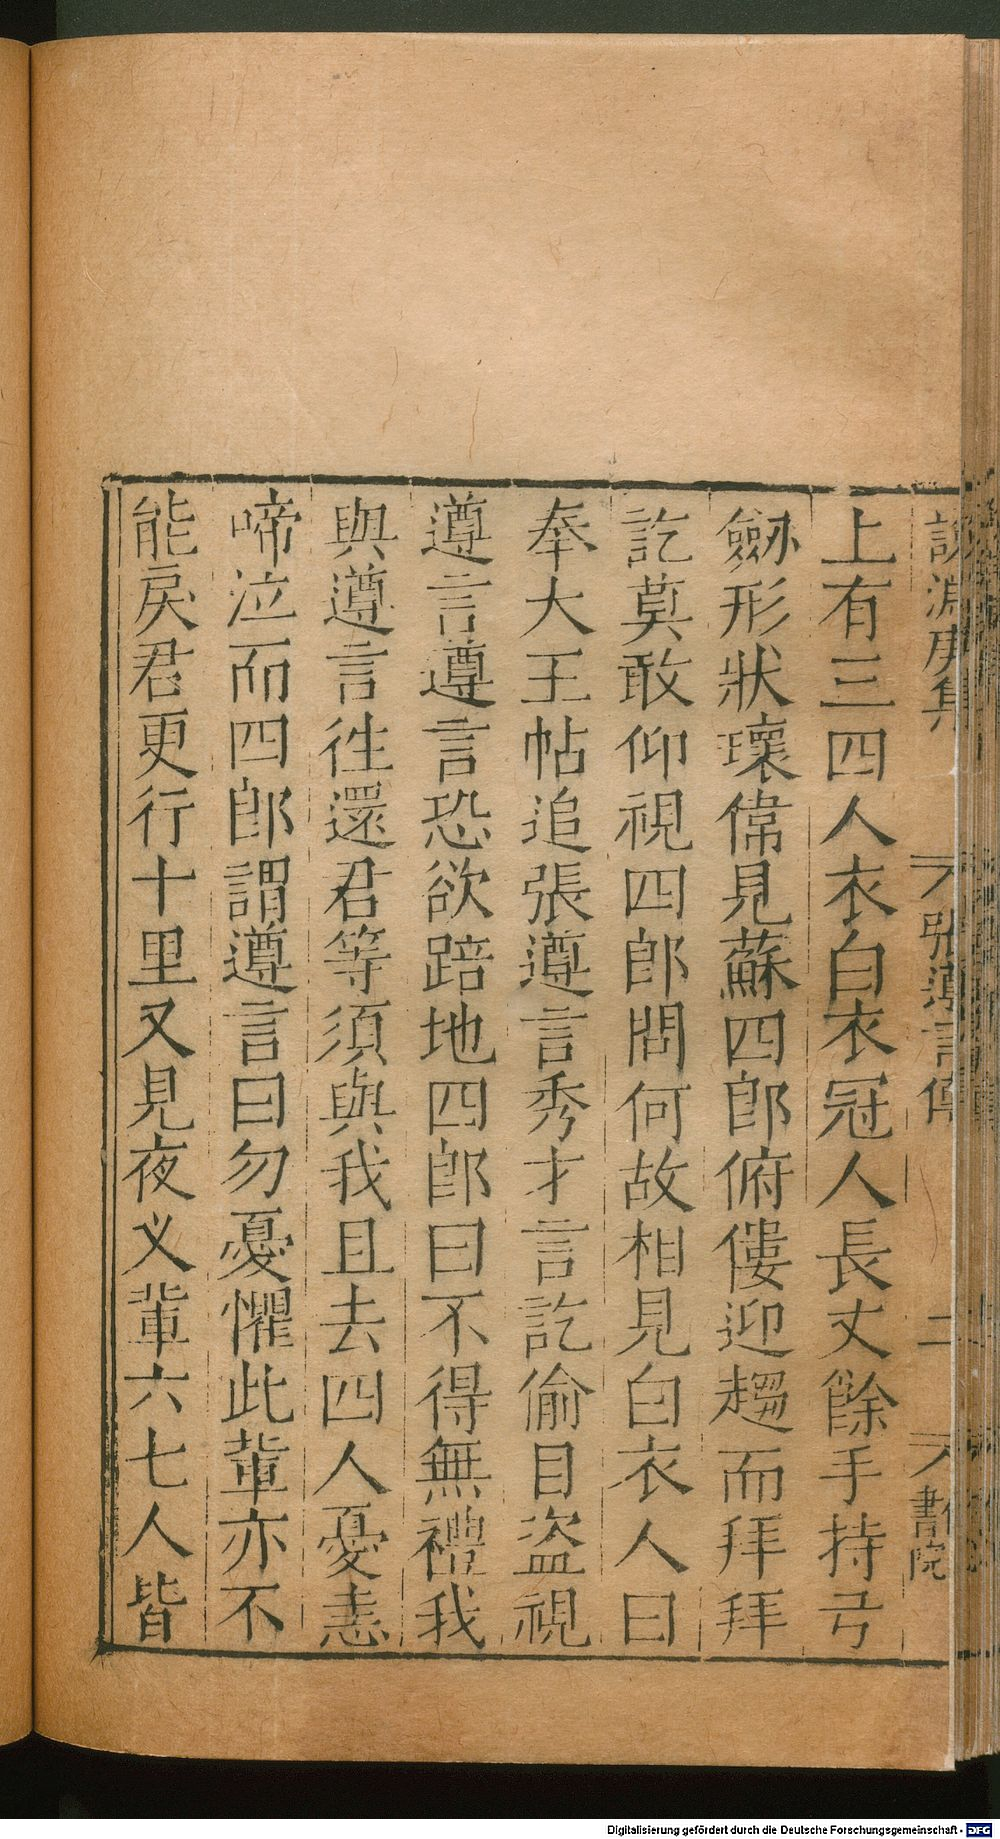 張遵言傳
二
書院
上有三四人衣白衣冠人長丈餘手持弓
劔形狀瓌偉見蘇四郎俯僂迎趨而拜拜
訖莫敢仰視四郎問何故相見白衣人曰
奉大王帖追張遵言秀才言訖偷目盜視
遵言遵言恐欲踣地四郎曰不得無禮我
與遵言徃還君等須與我且去四人憂恚
啼泣而四郎謂遵言曰勿憂懼此輩亦不
能戾君更行十里又見夜义輩六七人皆
Digitalisierung gefördert durch die Deutsche Forschungsgemeinschaft - DFG